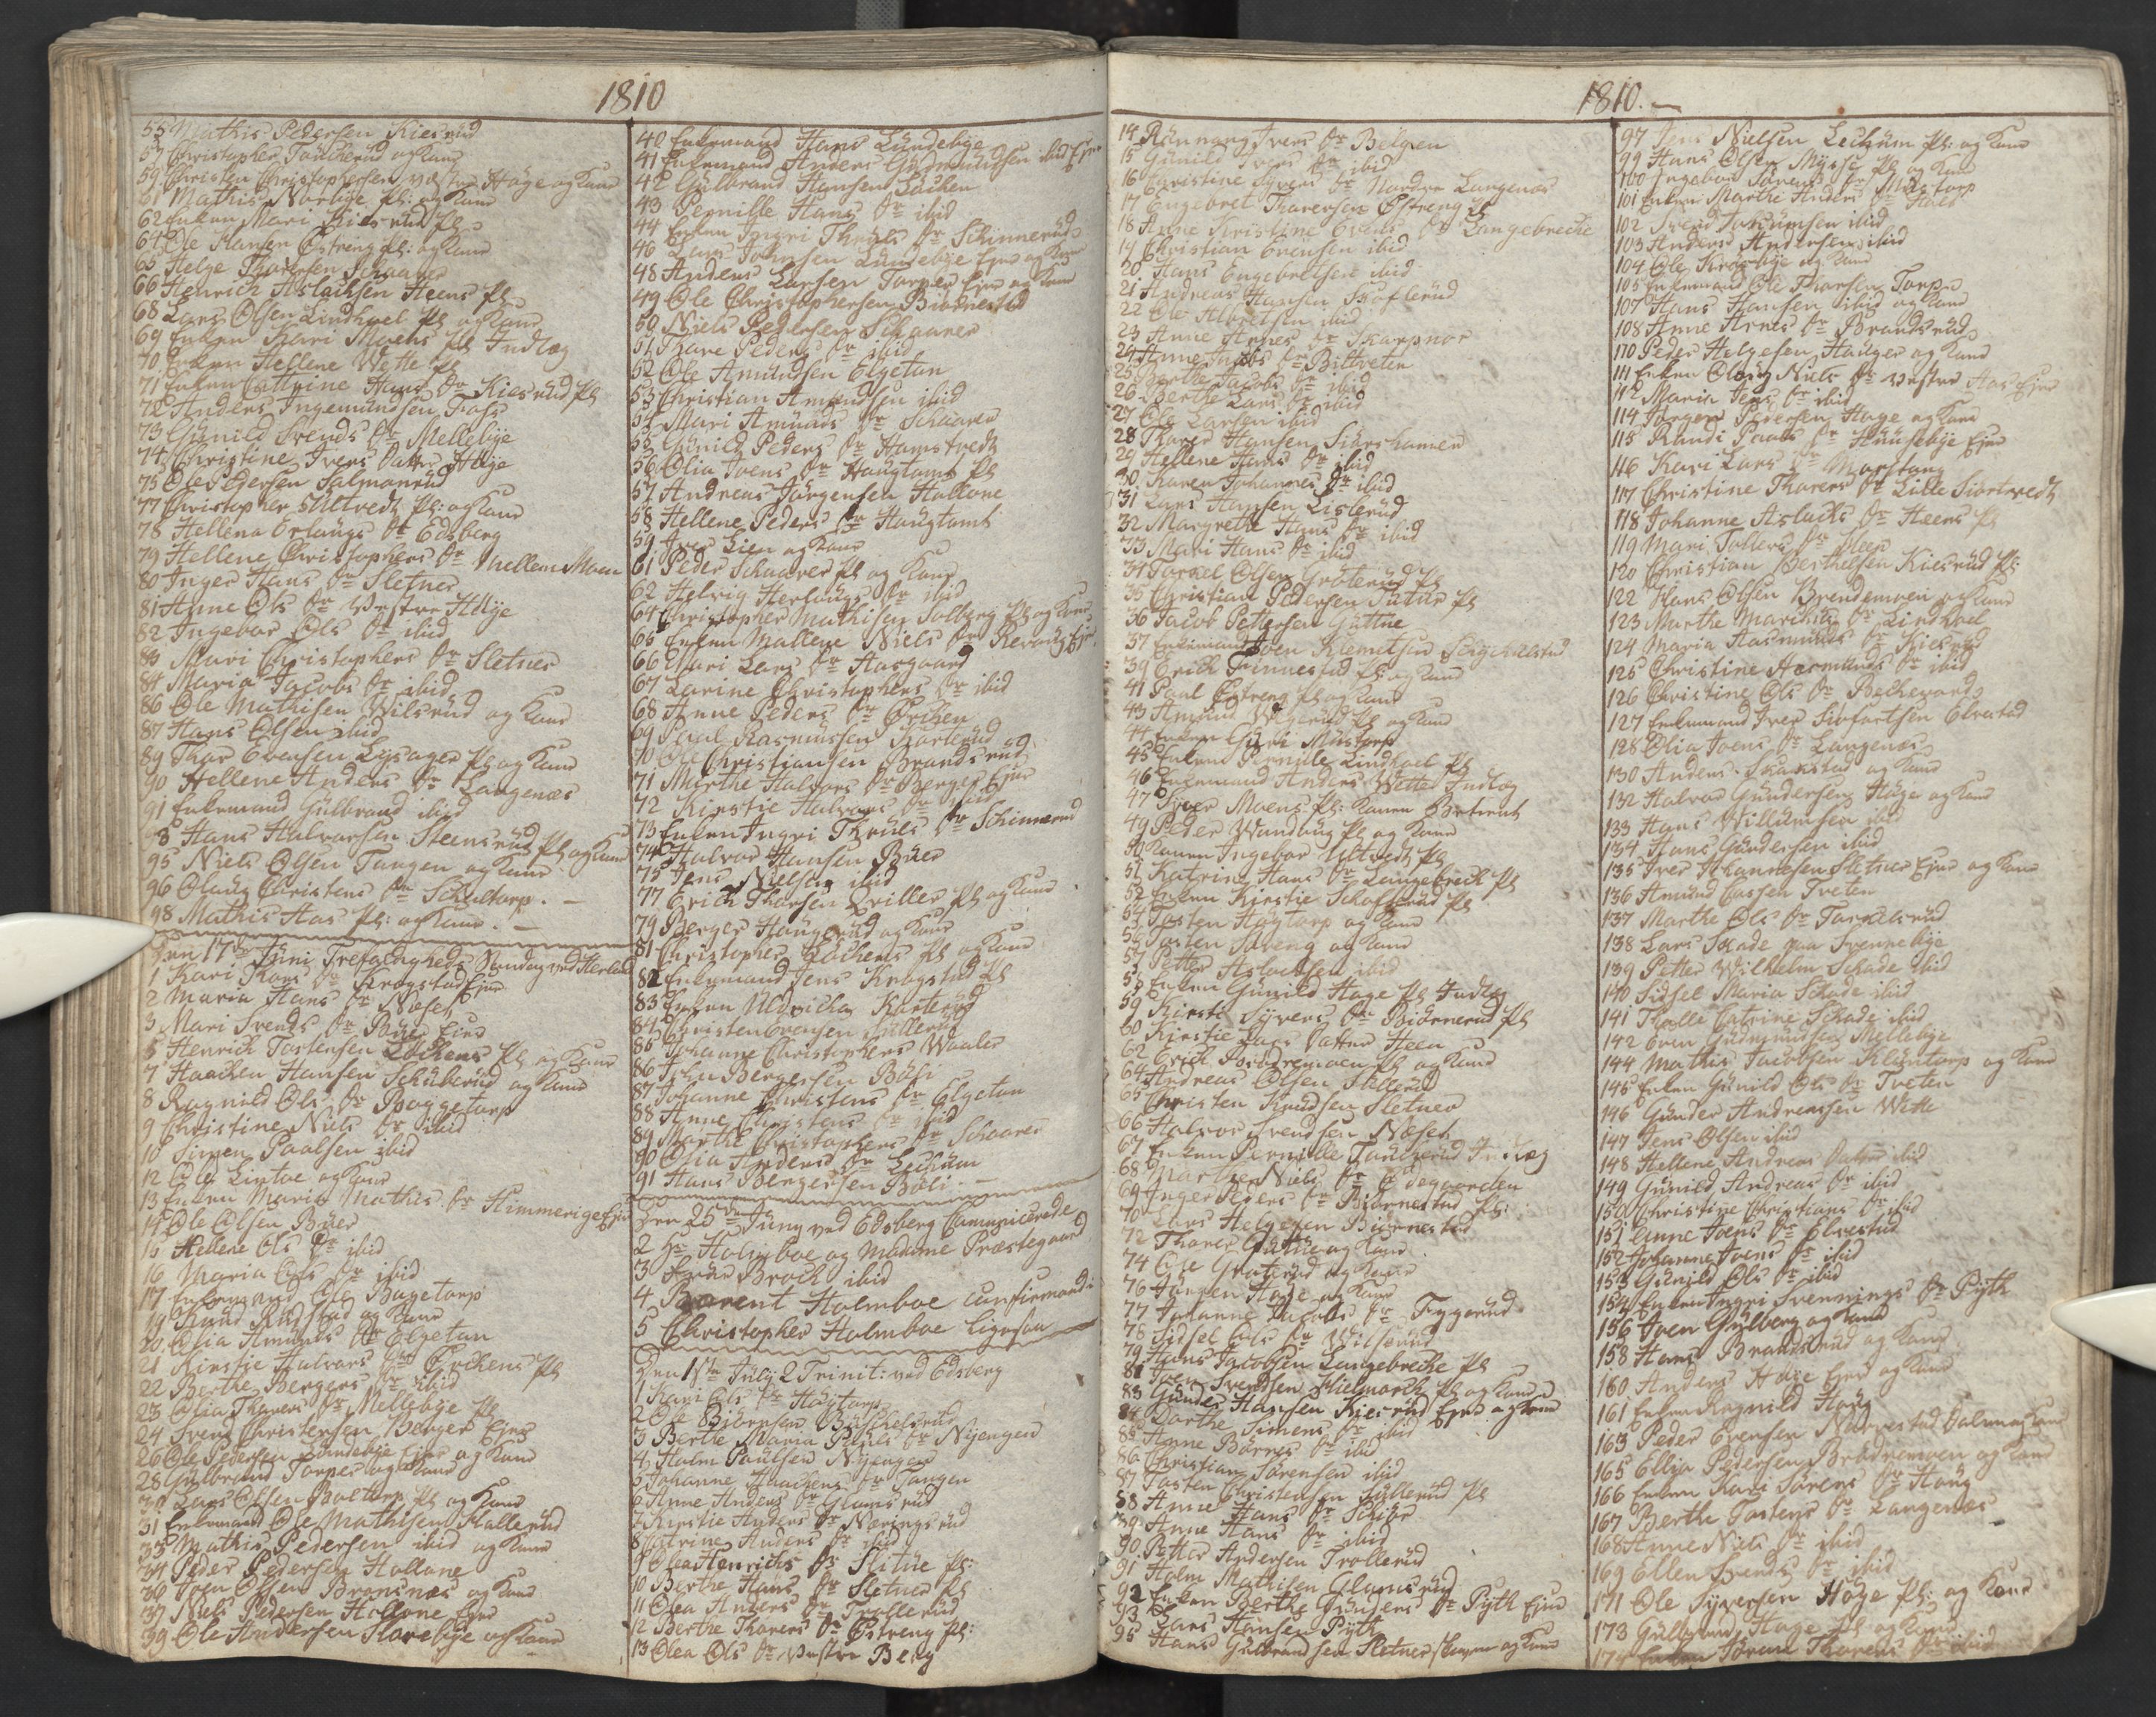 1810
55 Mathis Pedersen Kiesrud
57 Christopher Tducherud og Kone
59 Christen Christophersen vestre Høge og Kone
61 Mathis Norbye Pl: og Kone
62 Enken Mari Kiesrud Pl
64 Ole Hansen Østreng Pl: og Kone
65 Helge Thoresen Schaarer
66 Henrich Aslachsen Heens Pl
68 Lars Olsen Lindhoel Pl og Kone
69 Enken Kari Moens Pl Indlæg
70 Enken Hellene Wette Pl
71 Enken Cattrine Hans Dr Kiesrud Pl
72 Anders Ingemundsen Foss
73 Gunild Svends Dr Mellebye
74 Christine Ivers Datter Høye
75 Ole Pedersen Salmonrud
77 Christopher Ultvedt Pl: og Kone
78 Hellena Erlaugs Dr Edsberg
79 Hellene Christophers Dr mellem Moen
80 Inger Hans Dr Sletner
81 Anne Ols Dr Vestre Høye
82 Ingebor Ols Dr ibid
83 Mari Christophers Dr Sletner
84 Maria Jacobs Dr ibid
86 Ole Mathisen Wilsrud og Kone
87 Hans Olsen ibid
89 Thor Evensen Lysager Pl og Kone
90 Hellene Anders Dr Langenæs
91 Enkemand Gulbrand ibid
93 Hans Halvorsen Steensrud Pl og Kone
95 Niels Olsen Tangen og Kone
96 Olaug Christens Dr Schultorp. –
98 Mathis Aas Pl: og Kone. –
Den 17de Juni Trefoldigheds Søndag ved Herland
1 Kari Thors Dr Krogstad Ejer
2 Maria Hans Dr Næset
3 Mari Svends Dr Buer Ejer
5 Henrich Tostensen Løchens Pl og Kone
7 Haachen Hansen Schuberud og Kone
8 Ragnild Ols Dr Boggetorp
9 Christine Niels Dr ibid
10 Simen Paalsen ibid
12 Ole Lintoe og Kone
13 Enken Marie Mathis Dr Himmerige Ejer
14 Ole Olsen Buer
15 Hellene Ols Dr ibid
16 Maria Ols Dr ibid
17 Enkemand Ole Bagetorp
19 Knud Rudstad og Kone
20 Olia Amunds Dr Elgetun
21 Kirstie Halvors Dr Ørchens Pl
22 Berthe Bergers Dr ibid
23 Olia Thorers Dr Mellebye Pl
24 Svend Christensen Berger Ejer
26 Ole Pedersen Lundebye Ejer og Kone
28 Gulbrand Torper og Kone
30 Lars Olsen Boltorp Pl og Kone
31 Enkemand Ole Mathisen Kallerud
33 Mathis Pedersen ibid og Kone
34 Peder Pedersen Hollone
36 Joen Olsen Bransnæs og Kone
37 Niels Pedersen Hollone Ejer
39 Ole Andersen Slorebye og Kone
40 Enkemand Hans Lundebye
41 Enkemand Anders Gudmundsen ibid Ejer
42 Gulbrand Hansen Løchen
43 Pernille Hans Dr ibid
44 Enken Ingri Thruls Dr Schinnerud
46 Lars Johnsen Lundebye Ejer og Kone
48 Anders Larsen Torper Ejer og Kone
49 Ole Christophersen Biørnestad
50 Niels Pedersen Schaarer
51 Thore Peders Dr ibid
52 Ole Amundsen Elgetun
53 Christian Amundsen ibid
54 Mari Amunds Dr Schaarer
55 Gunild Peders Dr Hamstvedt
56 Olia Joens Dr Haugtomt Pl
57 Andreas Jørgensen Hollone
58 Hellene Peders Dr Haugtomt
59 Iver Lien og Kone
61 Peder Schaarer Pl og Kone
62 Helvig Herlougs Dr ibid
64 Christopher Mathisen Solberg Pl og Kone
65 Enken Mallene Niels Dr Revoug Ejer
66 Mari Lars Dr Aasgaard
67 Larine Christophers Dr ibid
68 Anne Peders Dr Ørchen
69 Poul Rasmussen Korterud
70 Ole Christiansen Brandsrud
71 Marthe Halvors Dr Berger Ejer
72 Kirstie Halvors Dr ibid
73 Enken Ingri Thruls Dr Schinnerud
74 Halvor Hansen Buer
75 Jens Nielsen ibid
77 Erich Thorsen Qviller Pl og Kone
79 Berger Haugerud og Kone
81 Christopher Løchens Pl og Kone
82 Enkemand Jens Krogstad Pl
83 Enken Uldricha Korterud
84 Christen Evensen Sillerud
85 Johanne Christophers Waaler
86 John Bergersen Bøli
87 Johanne Christens Dr Elgetun
88 Anne Christens Dr ibid
89 Marthe Christophers Dr Schaarer
90 Olia Anders Dr Lechum
91 Hans Bergersen Bøli. –
Den 25de Juny ved Edsberg Communicerede
2 Hr Holmboe og Madame Præstegaard
3 Frue Broch ibid
4 Barent Holmboe confirmand:
5 Christopher Holmboe ligesaa
Den 1ste July 2 Trinit: ved Edsberg
1 Kari Ols Dr Høytorp
2 Ole Biørnsen Buschelsrud
3 Berthe Maria Pouls Dr Nyengen
4 Holm Poulsen Nyengen
5 Johanne Haachens Dr Tangen
6 Anne Anders Dr Glamsrud
7 Kirstie Anders Dr Næringsrud
8 Catrine Anders Dr ibid
9 Olea Henrichs Dr Slitue Pl:
10 Berthe Hans Dr Sletner Pl
11 Olea Anders Dr Trollerud
12 Berthe Thorers Dr Østreng Pl:
13 Olea Ols Dr Vestre Berg
1810. –
14 Rønnaug Ivers Dr Belgen
15 Gunild Ivers Dr ibid
16 Christine Syvers Dr Nordre Langenæs
17 Engebret Thorersen Østreng Pl
18 Anne Kirstine Evens Dr Langebreche
19 Christian Evensen ibid
20 Hans Engebretsen ibid
21 Andreas Hansen Skofterud
22 Ole Albretsen ibid
23 Anne Arnes Dr Skarpnor
24 Anne Jacobs Dr Biltvetten
25 Berthe Jacobs Dr ibid
26 Berthe Lars Dr ibid
27 Ole Larsen ibid
28 Thorer Hansen Siørshamer
29 Hellene Hans Dr ibid
30 Karen Johannes Dr ibid
31 Lars Hansen Listerud
32 Margrethe Hans Dr ibid
33 Mari Hans Dr ibid
34 Torkel Olsen Groterud Pl
35 Christian Pedersen Tutur Pl
36 Jacob Pettersen Guttue
37 Enkemand Joen Klemetsen
39 Erich Finnestad Pl: og Kone
41 Paul Østreng Pl og Kone
43 Amund Wegerud Pl og Kone
44 Enken Guri Mustorp
45 Enken Pernille Lindhoel Pl
46 Enkemand Anders Wette Indlæg
47 Iver Moens Pl: Konen
49 Peder Wandaug Pl og Kone
50 Konen Ingebor Ultvedt Pl
51 Katrine Hans Dr Langebrech Pl
52 Enken Kirstie Schofterud Pl
54 Tosten Høgtorp og Kone
56 Tosten Saveng og Kone
57 Petter Aslachsen ibid
58 Enken Gunild Hage Pl Indlæg
59 Kirsti Syvers Dr Biørnerud Pl
60 Kirstie Lars Datter Heen
62 Erich Brødremoen Pl og Kone
64 Andreas Olsen Sillerud
65 Christen Knudsen Sletner
66 Halvor Svendsen Næset
67 Enken Pernille Taucherud Indlæg
68 Marthe Niels Dr Ødegaarden
69 Inger Peders Dr Biørnestad Pl:
70 Lars Helgesen Biørnestad
72 Thorer Guttue og Kone
74 Ole Groterud og Kone
76 Jørgen Høie og Kone
77 Johanne Jacobs Dr Tygerud
78 Sidsel Ols Dr Wilsrud
79 Hans Jacobsen Langebreche Pl
81 Sven Svendsen Kielmarch Pl og Kone
83 Gunder Hansen Kiesrud Ejer og Kone
84 Dorthe Simens Dr ibid
85 Anne Børnes Dr ibid
86 Christian Sørensen ibid
87 Tosten Christensen Sillerud Pl
88 Anne Hans Dr Schiør
89 Anne Hans Dr ibid
90 Petter Andersen Trollerud
91 Holm Mathisen Glamsrud
92 Enken Berthe Gunders Dr Pyth Ejer
93 Lars Hansen Pyth
95 Hans Gulbrandsen Sletner og Kone
97 Jens Nielsen Lechum Pl: og Kone
99 Hans Olsen Mysse Pl og Kone
100 Ingebor Sørens Dr Mustorp
101 Enken Marthe Anders Dr
102 Svend Joramsen ibid
103 Anders Andersen ibid
104 Ole Krogebye og Kone
105 Enkemand Ole Thorsen Torper
107 Hans Hansen ibid og Kone
108 Anne Arnes Dr Brandsrud
110 Peder Helgesen Hauger og Kone
111 Enken Olaug Niels Dr Vestre Aas Ejer
112 Maria Jens Dr ibid
114 Jørgen Pedersen Hage og Kone
115 Randi Paals Dr Huusebye Ejer
116 Kari Lars Dr Morstong
117 Christine Thorers Dr Lille Siortvedt
118 Johanne Aslachs Dr Heens Pl
119 Mari Tollefs Dr Sleep
120 Christian Berthelsen Kiesrud Pl:
122 Hans Olsen Brendemoen og Kone
123 Marthe Marchus Dr Lindhoel
124 Maria Aasmunds Dr Kiesrud
125 Christine Asmunds Dr ibid
126 Christine Ols Dr Bechevard
127 Enkemand Iver Siofartsen Elvestad
128 Olia Joens Dr Langenæs
130 Anders Skanstad og Kone
132 Halvor Gundersen Høger og Kone
133 Hans Willumsen ibid
134 Hans Gundersen ibid
135 Iver Johannesen Sletner Ejer og Kone
136 Amund Larsen Tveten
137 Marthe Ols Dr Torkelsrud
138 Lars Schade paa Svennebye
139 Petter Wilhelm Schade ibid
140 Sidsel Maria Schade ibid
141 Thalle Catrine Schade ibid
142 Even Gudmundsen Mellebye
144 Mathis Jacobsen Kluntorp og Kone
145 Enken Gunild Ols Dr Tveten
146 Gunder Andreassen Wette
147 Jens Olsen ibid
148 Hellene Andreas Datter ibid
149 Gunild Andreas Dr ibid
150 Christine Christians Dr ibid
151 Anne Joens Dr Elvestad
152 Johanne Joens Dr ibid
153 Gunild Ols Dr ibid
154 Enken Ingri Svennings Dr Pyth
156 Joen Gulberg og Kone
158 Hans Brandsrud og Kone
160 Anders Høie Ejer og Kone
161 Enken Ragnild Houg
163 Peder Evensen Narvestad og Kone
165 Ellia Pedersen Brødremoen og Kone
166 Enken Kari Sørens Dr Houg
167 Berthe Tostens Dr Langenæs
168 Anne Niels Dr ibid
169 Ellen Svends Dr ibid
171 Ole Syversen Høge Pl: og Kone
173 Gulbrand Hage Pl og Kone
174 Enken Jørane Thorers Dr ibid